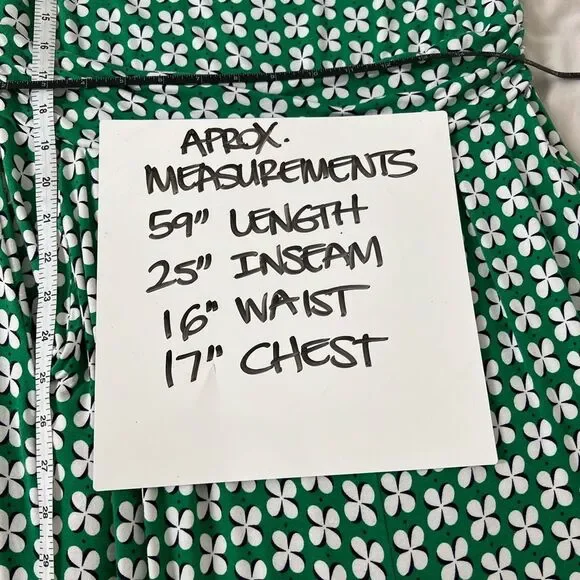 APROX.
MEASUREMENTS
59" LENGTH
25" INSEAM
16" WAIST
17" CHEST
15
16
17
18
19
20
21
22
23
24
25
26
27
28
29